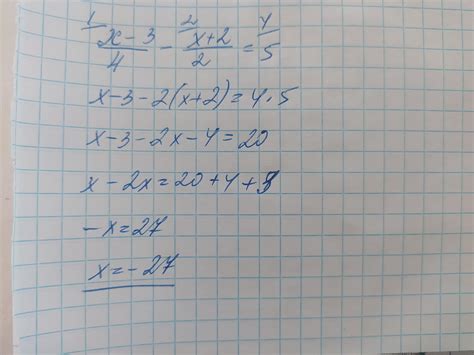 1 2 4
x-3/4 - x+2/2 = 5
x-3-2(x+2)=4·5
x-3-2x-4=20
x-2x=20+4+3
-x=27
x=-27